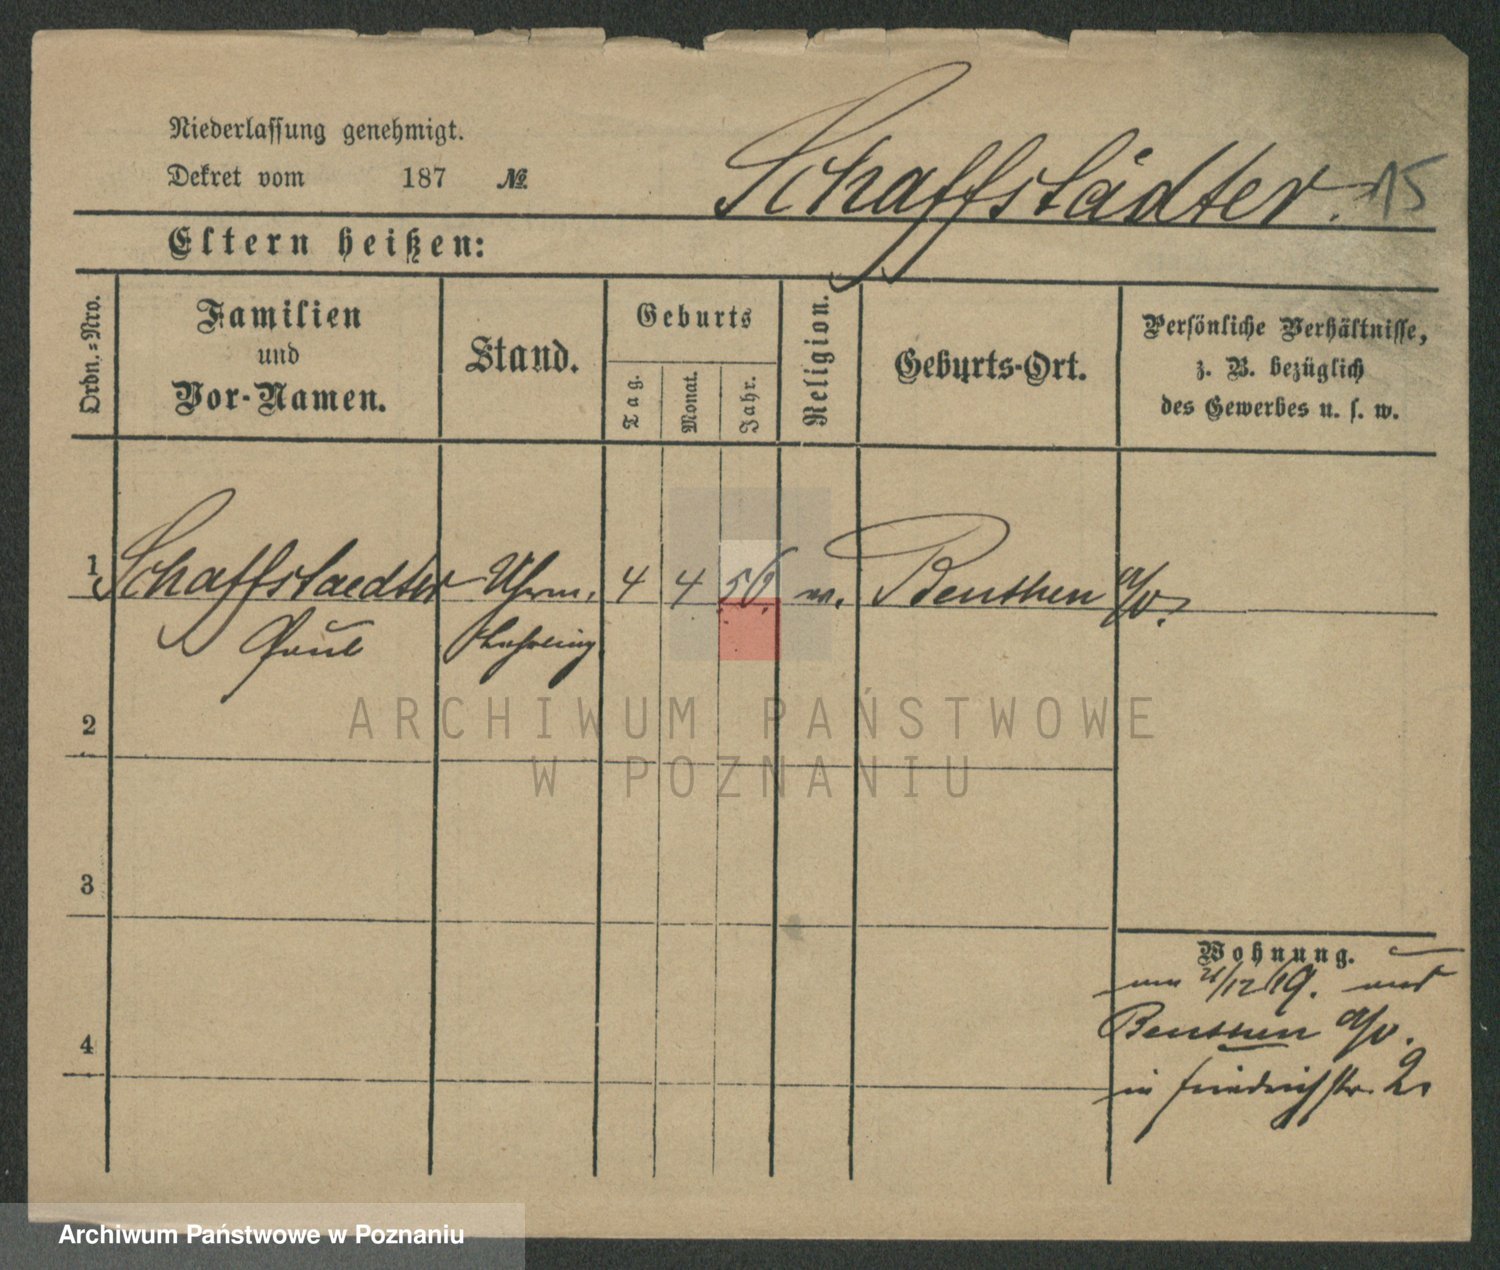 Niederlassung genehmigt.
Dekret vom 187 №
Schaffstädter. 15
Eltern heißen:
Ordn.=Nro.
Familien
und
Vor-Namen.
Stand.
Geburts
Tag.
Monat.
Jahr.
Religion.
Geburts-Ort.
Persönliche Verhältnisse,
z. B. bezüglich
des Gewerbes u. s. w.
1 Schaffstaedter Uhrm. 4 4 56. Beuthen a/O.
Paul Lehrling
2
3
4
Wohnung.
/12 19.
Beuthen a/O.
in Friedrichstr. 2.
ARCHIWUM PAŃSTWOWE
W POZNANIU
Archiwum Państwowe w Poznaniu